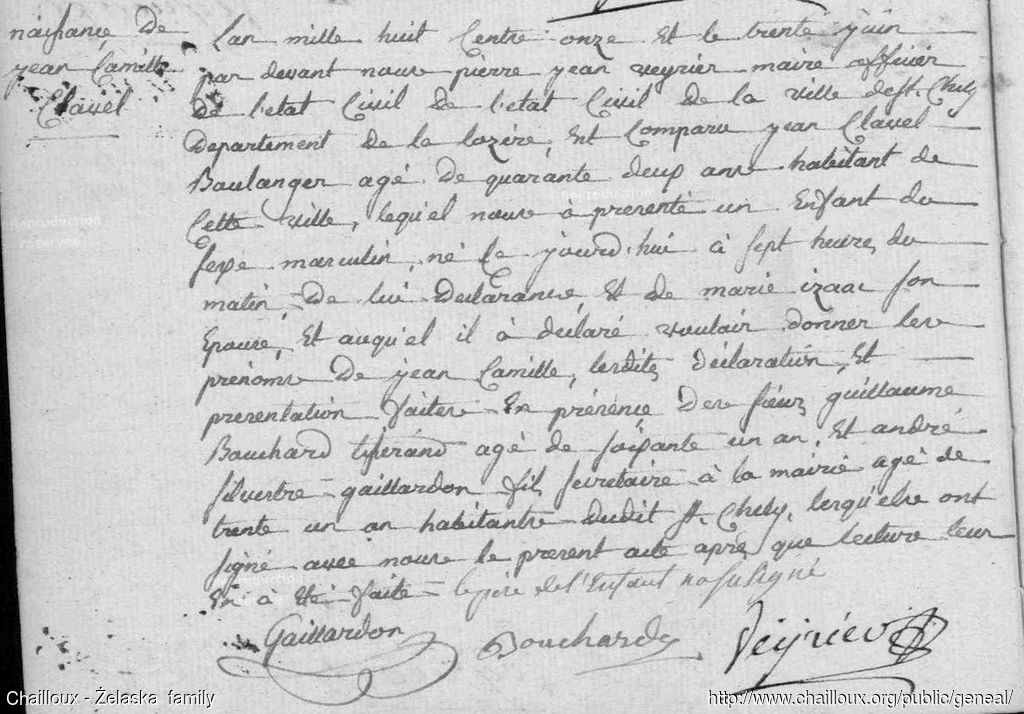 naissance de
jean Camille
Clavel
Lan mille huit Centre onze et le trente juin
par devant nous pierre jean veyrier maire officier
de l'etat Civil de l'etat Civil de la ville de st. Chely
Departement de la lozère, Est Comparu jean Clavel
Boulanger agé de quarante deux ans habitant de
Cette ville, lequ'el nous à presenté un Enfant du
sexe masculin, né le jourd'hui à sept heures du
matin, de lui declarant, et de marie izaac son
Epouse, Et auqu'el il à déclaré vouloir donner les
prénoms de jean Camille, lesdites déclaration, Et
presentation faites En présence des sieurs guillaume
Bouchard tisserand agé de soixante un an, Et andré
silvestre gaillardon fils secretaire à la mairie agé de
trente un an habitants dudit st. Chely, lesqu'els ont
signé avec nous le present acte après que lecture leur
En à été faite le père de l'Enfant na su signé
Gaillardon
Bouchard
Veyrier
Reproduction
réservée
Reproduction
Chailloux - Želaska family
http://www.chailloux.org/public/geneal/